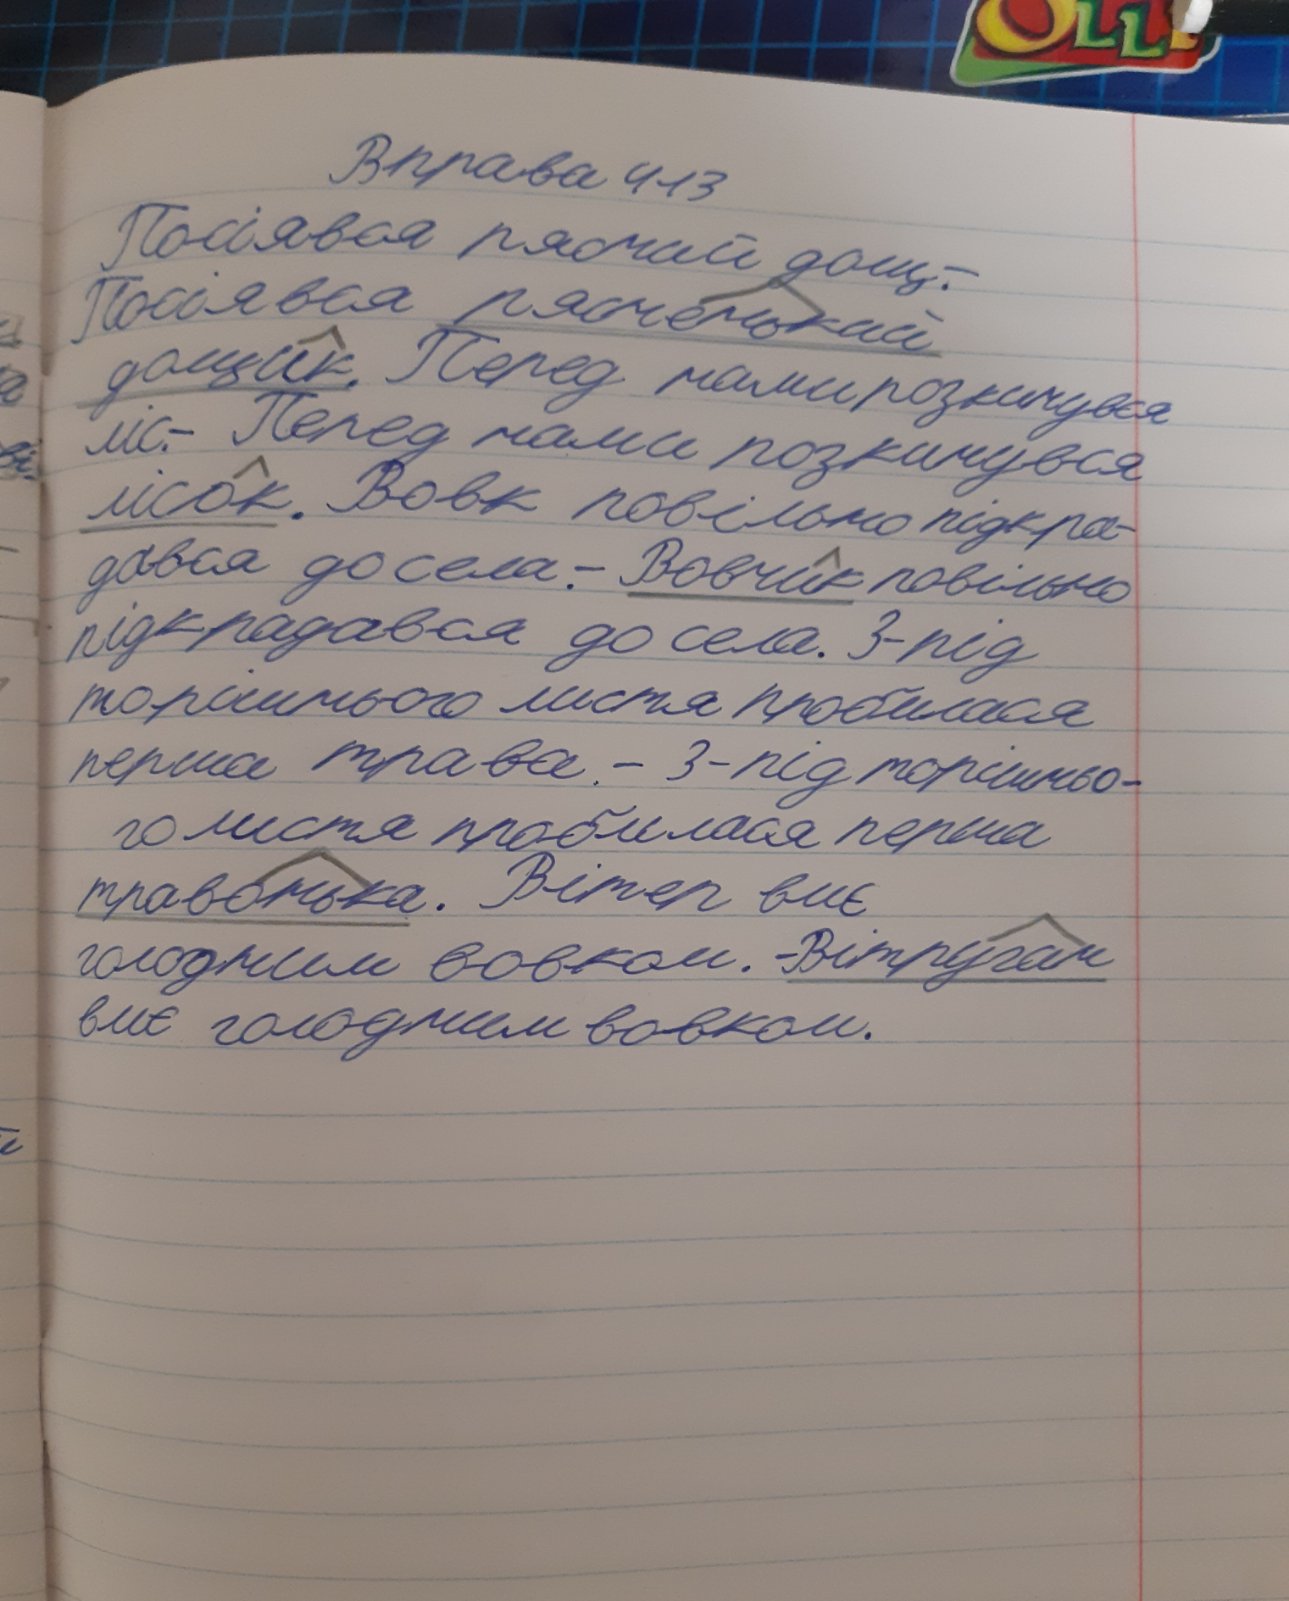 Вправа 413
Посіявся рясний дощ.-
Посіявся рясненький
дощик. Перед нами розкинувся
ліс.- Перед нами розкинувся
лісок. Вовк повільно підкра-
дався до села.- Вовчик повільно
підкрадався до села. З-під
торішнього листя пробилася
перша трава.- З-під торішньо-
го листя пробилася перша
травонька. Вітер виє
голодним вовком.-Вітруган
виє голодним вовком.